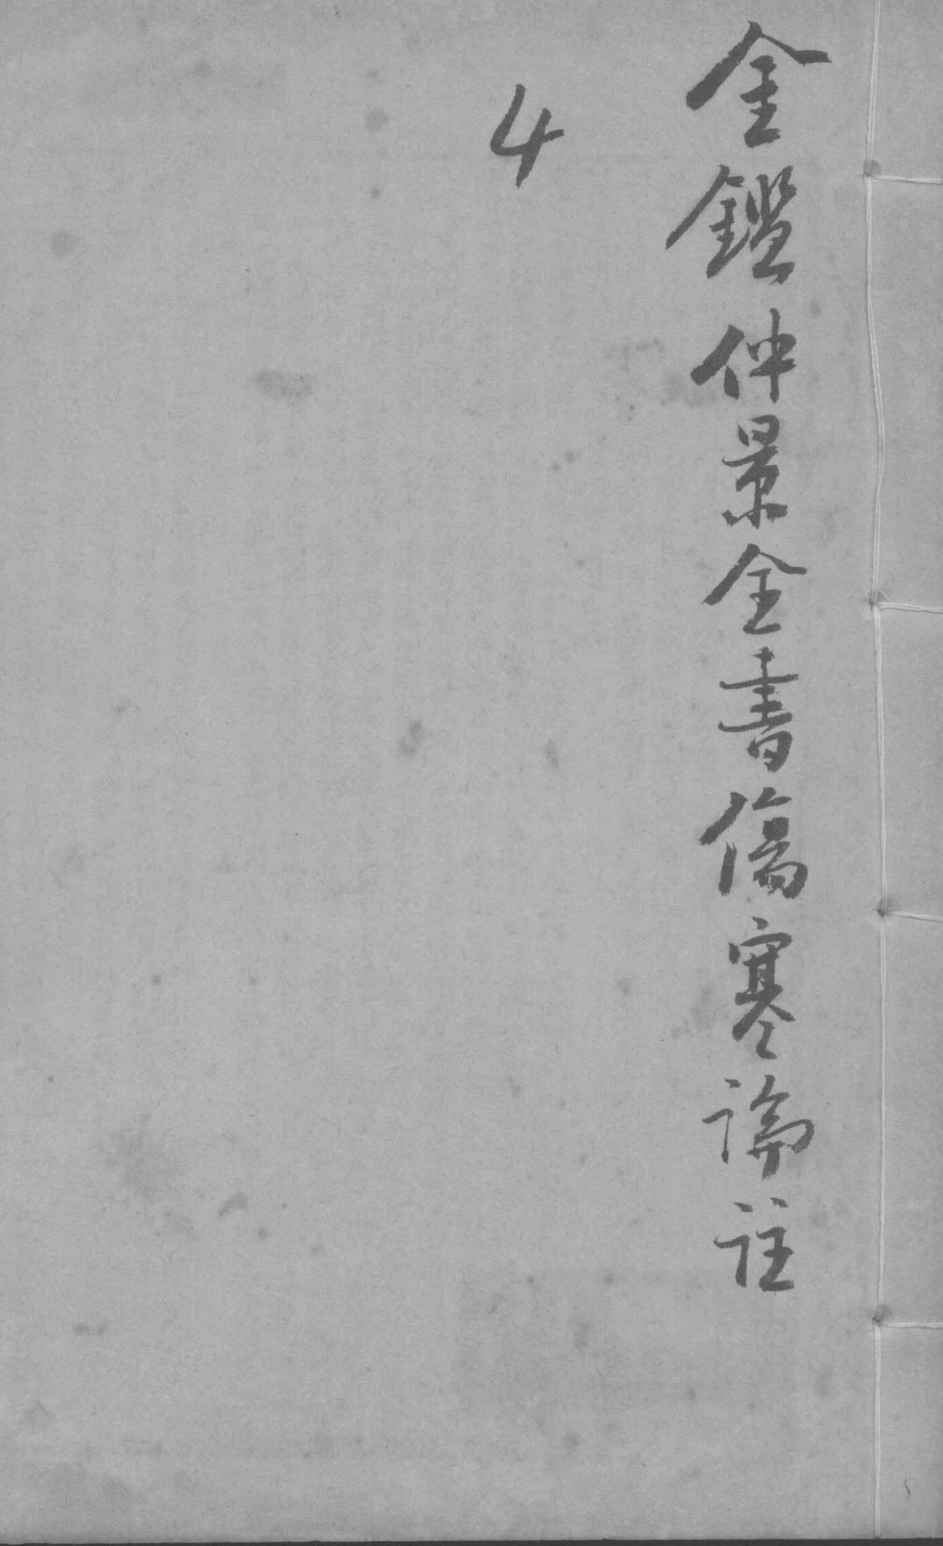 金鑑仲景全書傷寒論註
4